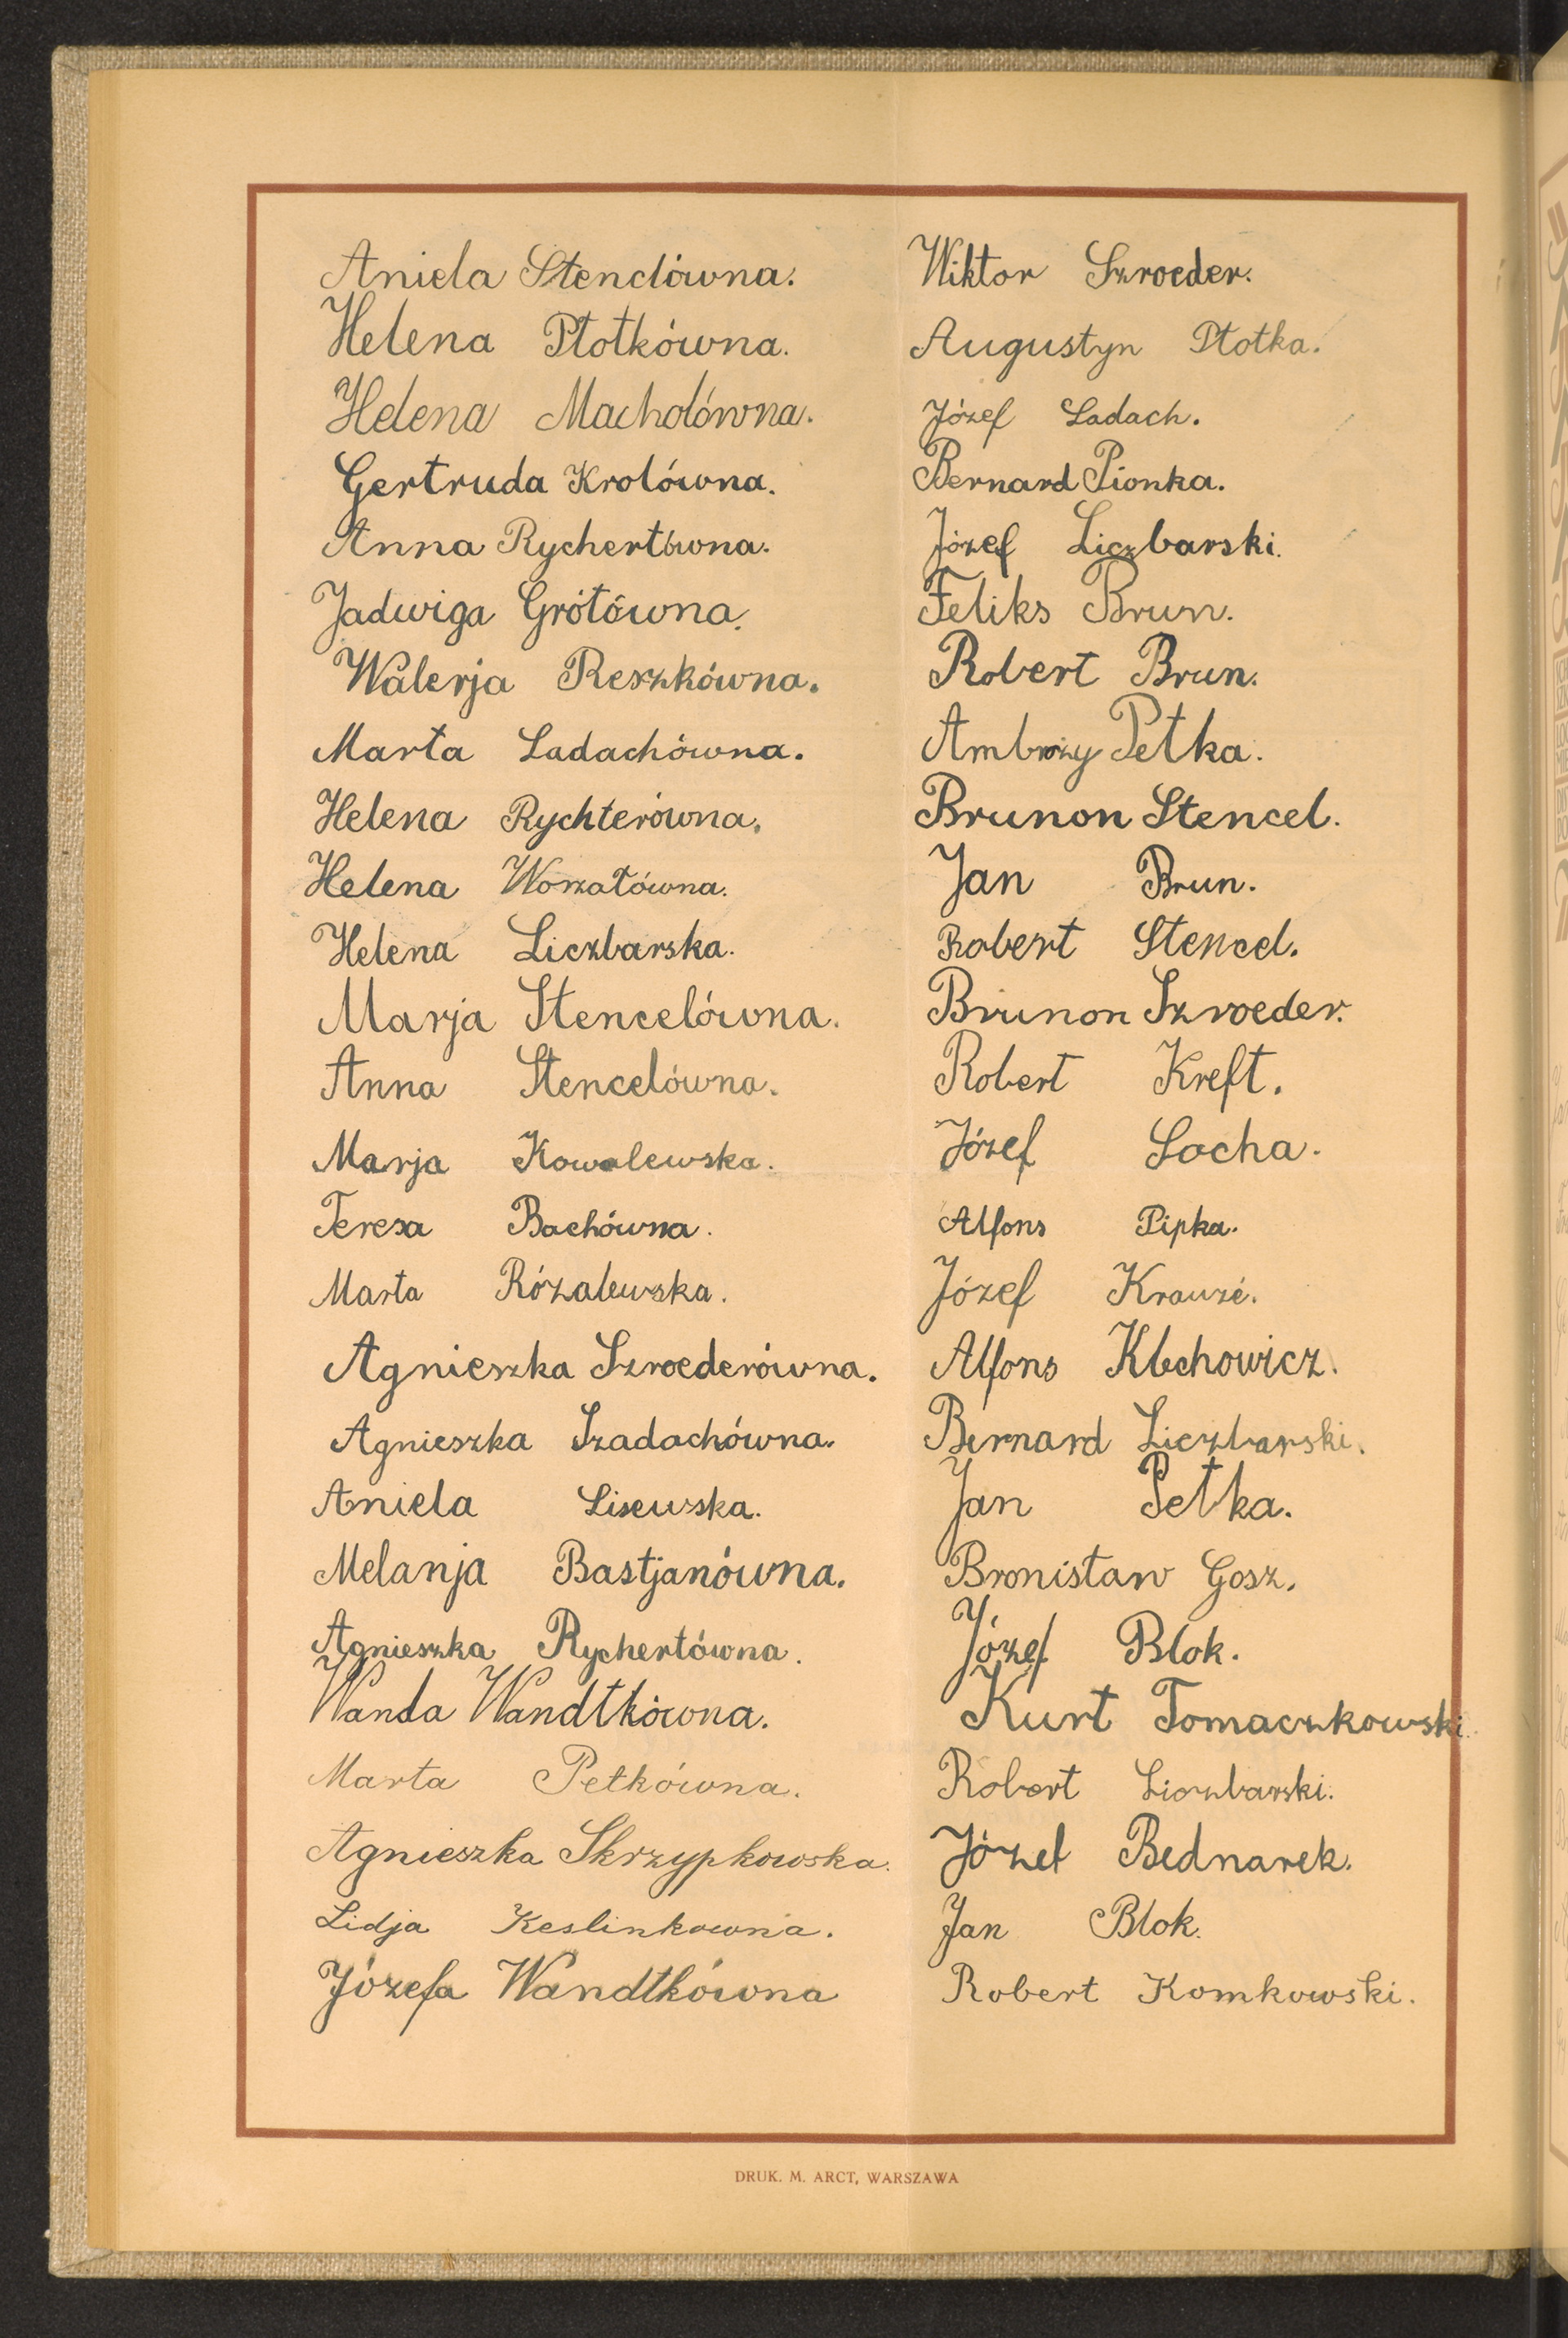 Aniela Stenclówna.
Helena Płotkówna.
Helena Machołówna.
Gertruda Krolówna.
Anna Rychertówna.
Jadwiga Grótówna.
Walerja Reszkówna.
Marta Ladachówna.
Helena Rychterówna.
Helena Worzałówna.
Helena Liczbarska.
Marja Stencelówna.
Anna Stencelówna.
Marja Kowalewska.
Teresa Bachówna.
Marta Rózalewska.
Agnieszka Szroederówna.
Agnieszka Szadachówna.
Aniela Lisewska.
Melanja Bastjanówna.
Agnieszka Rychertówna.
Wanda Wandtkówna.
Marta Petkówna.
Agnieszka Skrzypkowska.
Lidja Keslinkowna.
Józefa Wandtkówna
Wiktor Szroeder.
Augustyn Płotka.
Józef Ladach.
Bernard Pionka.
Józef Liczbarski.
Feliks Brun.
Robert Brun.
Ambroży Petka.
Brunon Stencel.
Jan Brun.
Robert Stencel.
Brunon Szroeder.
Robert Kreft.
Józef Socha.
Alfons Pipka.
Józef Krauzé.
Alfons Klechowicz.
Bernard Liczbarski.
Jan Petka.
Bronisław Gosz.
Józef Blok.
Kurt Tomaczkowski.
Robert Liczbarski.
Józef Bednarek.
Jan Blok.
Robert Komkowski.
DRUK. M. ARCT, WARSZAWA